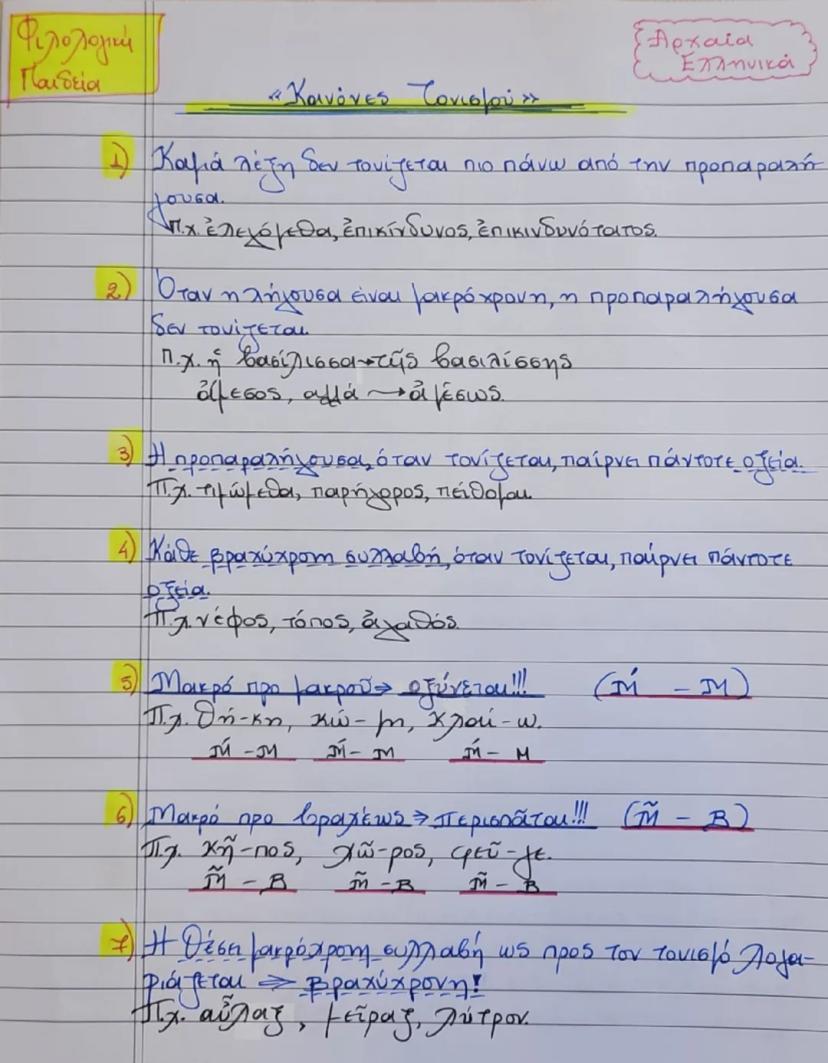 Φιλολογική
Παιδεία
Αρχαία
Ελληνικά
«Κανόνες Τονισμού»
1) Καμιά λέξη δεν τονίζεται πιο πάνω από την προπαραλή-
γουσα.
Π.χ. ἐλεγόμεθα, ἐπικίνδυνος, ἐπικινδυνότατος.
2) Όταν η λήγουσα είναι μακρόχρονη, η προπαραλήγουσα
δεν τονίζεται.
Π.χ. ἡ βασίλισσα→τῆς βασιλίσσης
ἄμεσος, αλλά → ἀμέσως.
3) Η προπαραλήγουσα, όταν τονίζεται, παίρνει πάντοτε οξεία.
Π.χ. τιμώμεθα, παρήγορος, πείθομαι.
4) Κάθε βραχύχρονη συλλαβή, όταν τονίζεται, παίρνει πάντοτε
οξεία.
Π.χ. νέφος, τόπος, ἀγαθός.
5) Μακρό προ μακρού⇒ οξύνεται!!! (Μ́ - Μ)
Π.χ. θή-κη, κώ-μη, κλαί-ω.
Μ́ - Μ Μ́ - Μ Μ́ - Μ
6) Μακρό προ βραχέως ⇒ περισπᾶται!!! (Μ̃ - Β)
Π.χ. κῆ-πος, χῶ-ρος, φεῦ-γε.
Μ̃ - Β Μ̃ - Β Μ̃ - Β
7) Η θέσει μακρόχρονη συλλαβή ως προς τον τονισμό λογα-
ριάζεται ⇒ βραχύχρονη!
Π.χ. αὖλαξ, μεῖραξ, λύτρον.